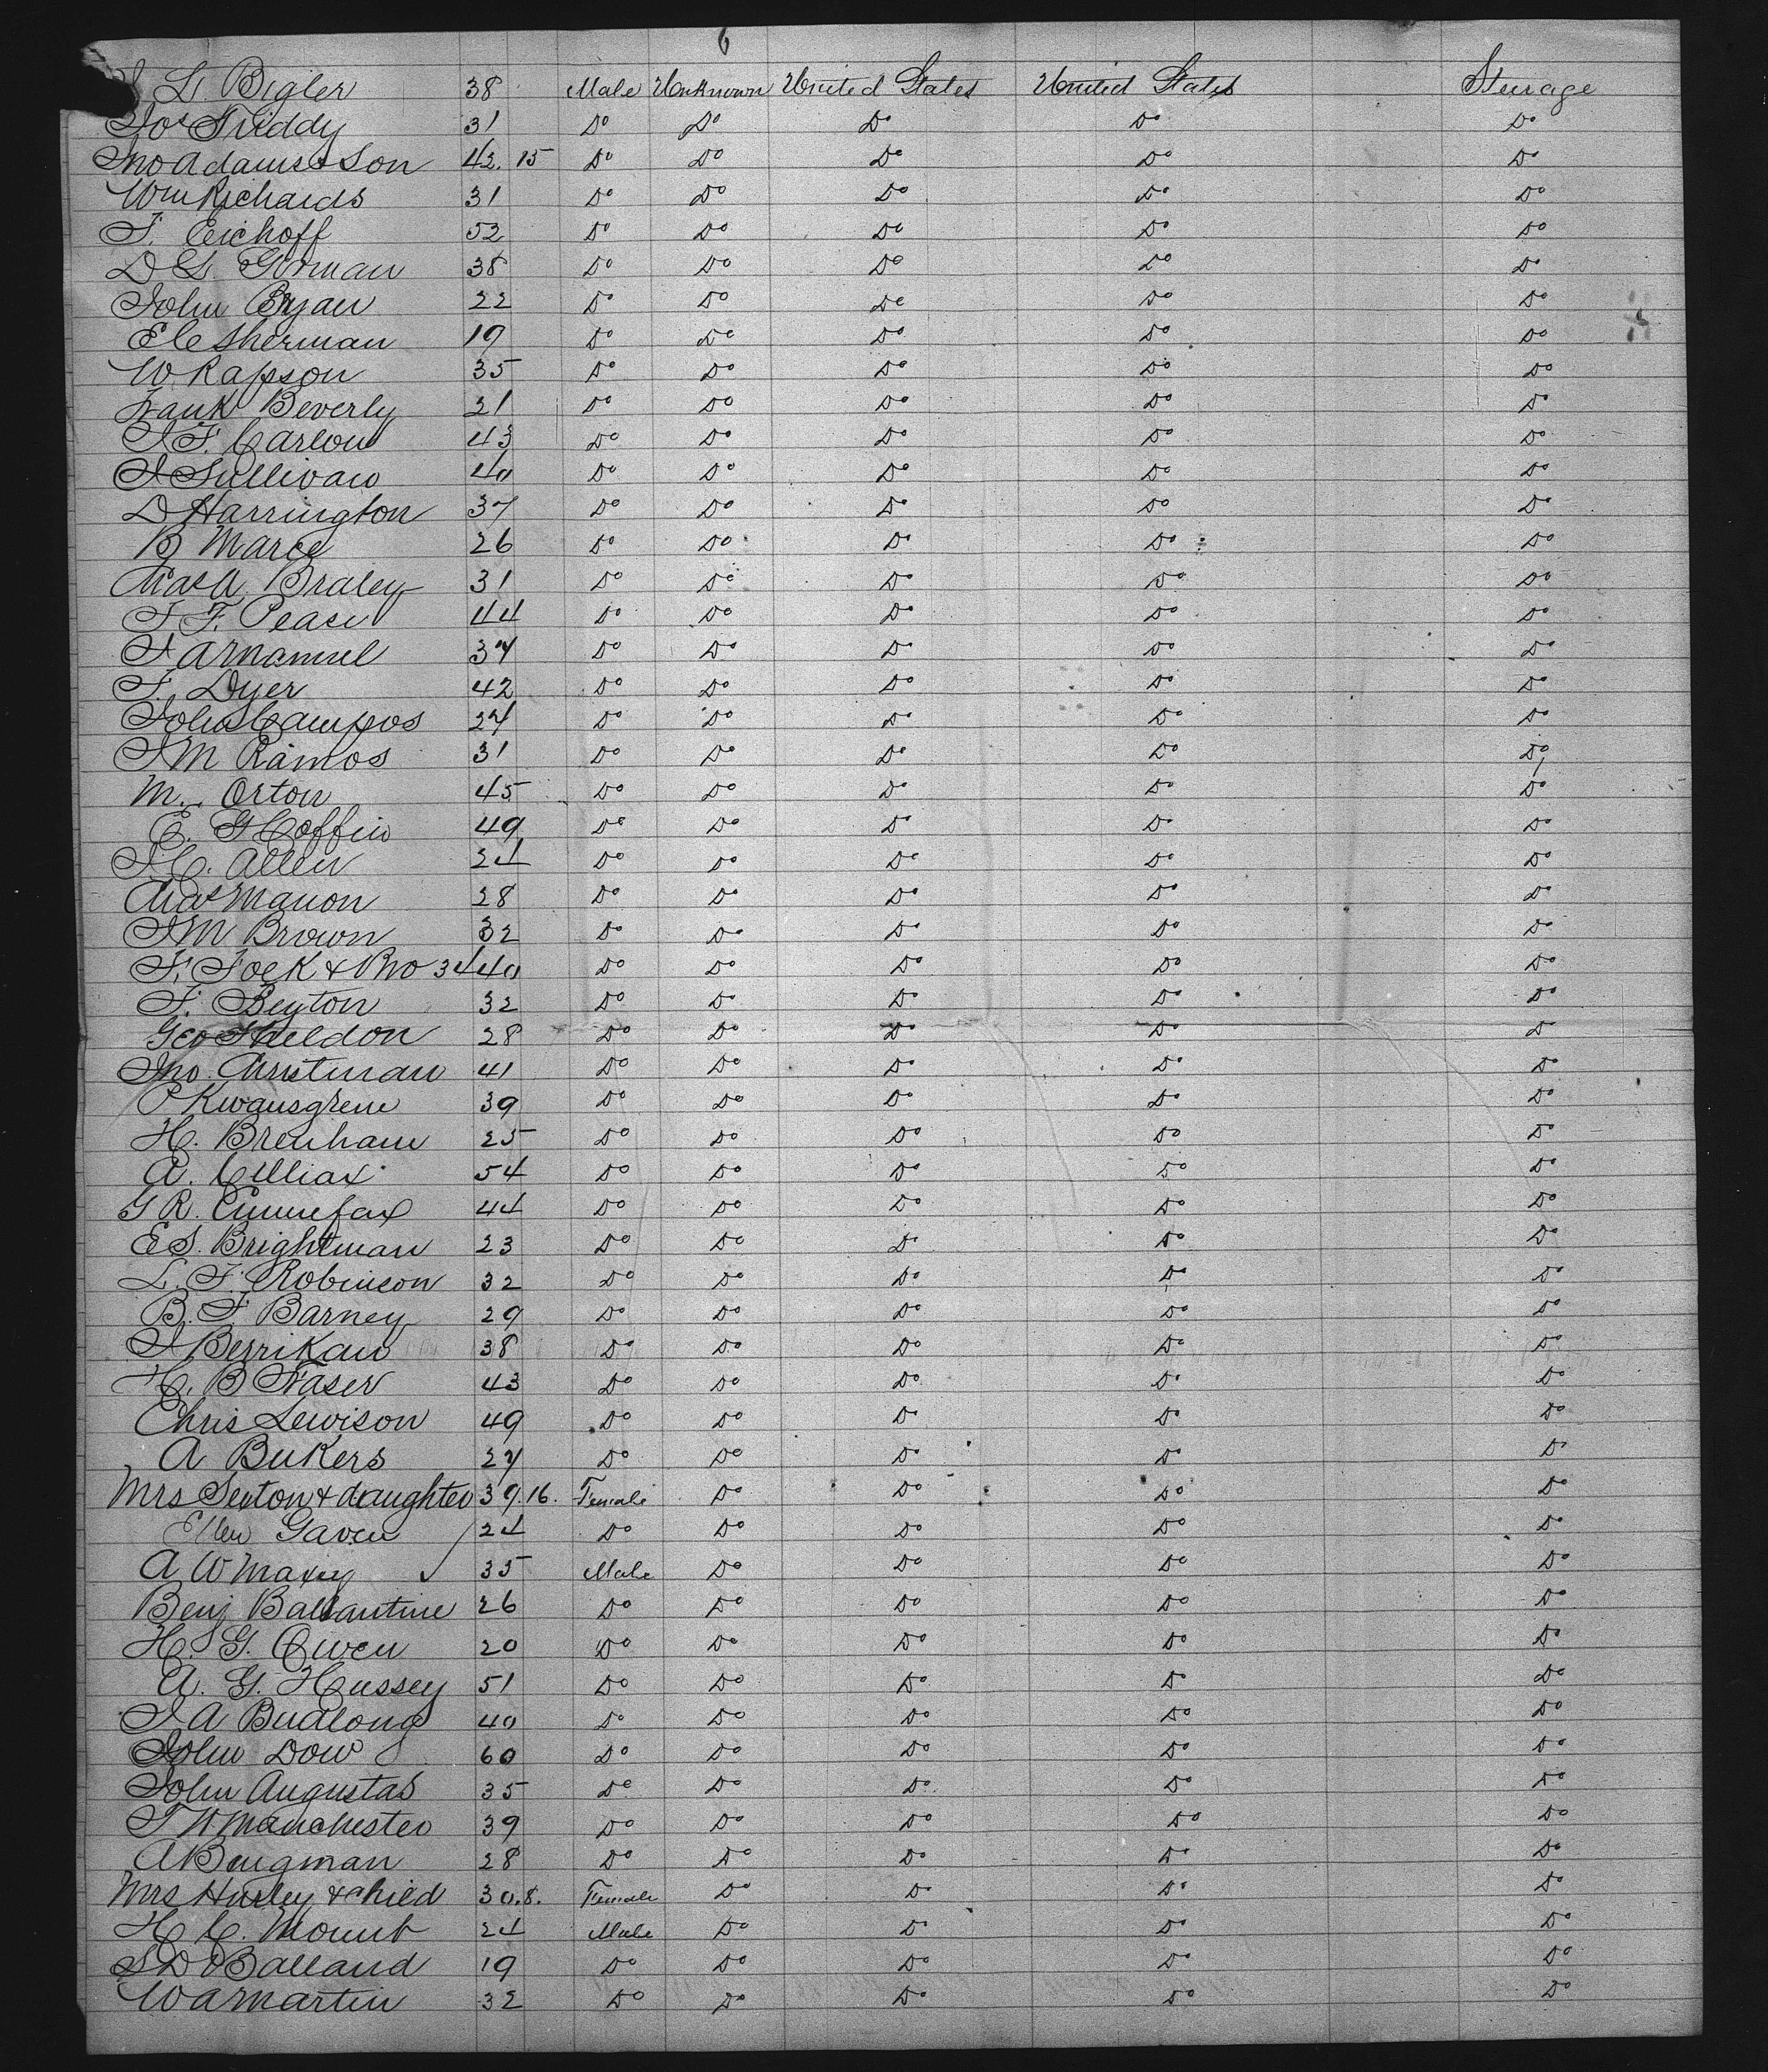 6
L. Bigler 38 Male Unknown United States United States Steerage
Jos Triddy 31 Do Do Do Do Do
Jno Adams & Son 42. 15 Do Do Do Do Do
Wm Richards 31 Do Do Do Do Do
F. Eichoff 52 Do Do Do Do Do
D L. Gorman 38 Do Do Do Do Do
John Bryan 22 Do Do Do Do Do
E C Sherman 19 Do Do Do Do Do
W. Rapson 35 Do Do Do Do Do
Frank Beverly 21 Do Do Do Do Do
J F. Carlow 43 Do Do Do Do Do
J Sullivan 40 Do Do Do Do Do
D Harrington 37 Do Do Do Do Do
B Marce 26 Do Do Do Do Do
Chas A. Braley 31 Do Do Do Do Do
T F. Pease 44 Do Do Do Do Do
J 37 Do Do Do Do Do
F. Dyer 42 Do Do Do Do Do
John Campos 27 Do Do Do Do Do
J M Ramos 31 Do Do Do Do Do
M. Orton 45 Do Do Do Do Do
E. G Coffin 49 Do Do Do Do Do
J. C. Allen 24 Do Do Do Do Do
Chas Manon 28 Do Do Do Do Do
J M Brown 32 Do Do Do Do Do
F. Fock & Bro 34 40 Do Do Do Do Do
F. Beyton 32 Do Do Do Do Do
Geo Sheldon 28 Do Do Do Do Do
Jno. Christman 41 Do Do Do Do Do
P Kwansgrene 39 Do Do Do Do Do
H. Brenham 25 Do Do Do Do Do
A. Cilliax 54 Do Do Do Do Do
G R. 44 Do Do Do Do Do
E S. Brightman 23 Do Do Do Do Do
L. F. Robinson 32 Do Do Do Do Do
B. F. Barney 29 Do Do Do Do Do
J Berrikan 38 Do Do Do Do Do
H. B Fraser 43 Do Do Do Do Do
Chris Lewison 49 Do Do Do Do Do
A Bukers 27 Do Do Do Do Do
Mrs Sexton & daughter 39. 16. Female Do Do Do Do
Ellen Gaven 24 Do Do Do Do Do
A W Maxey 35 Male Do Do Do Do
Benj Ballantine 26 Do Do Do Do Do
H. G. Owen 20 Do Do Do Do Do
A. G. Hussey 51 Do Do Do Do Do
J A Budlong 40 Do Do Do Do Do
John Dow 60 Do Do Do Do Do
John Augustas 35 Do Do Do Do Do
T W Manchester 39 Do Do Do Do Do
A Bengman 28 Do Do Do Do Do
Mrs Hurley & child 30. 8. Female Do Do Do Do
H C. Mount 24 Male Do Do Do Do
S D Balland 19 Do Do Do Do Do
W A Martin 32 Do Do Do Do Do